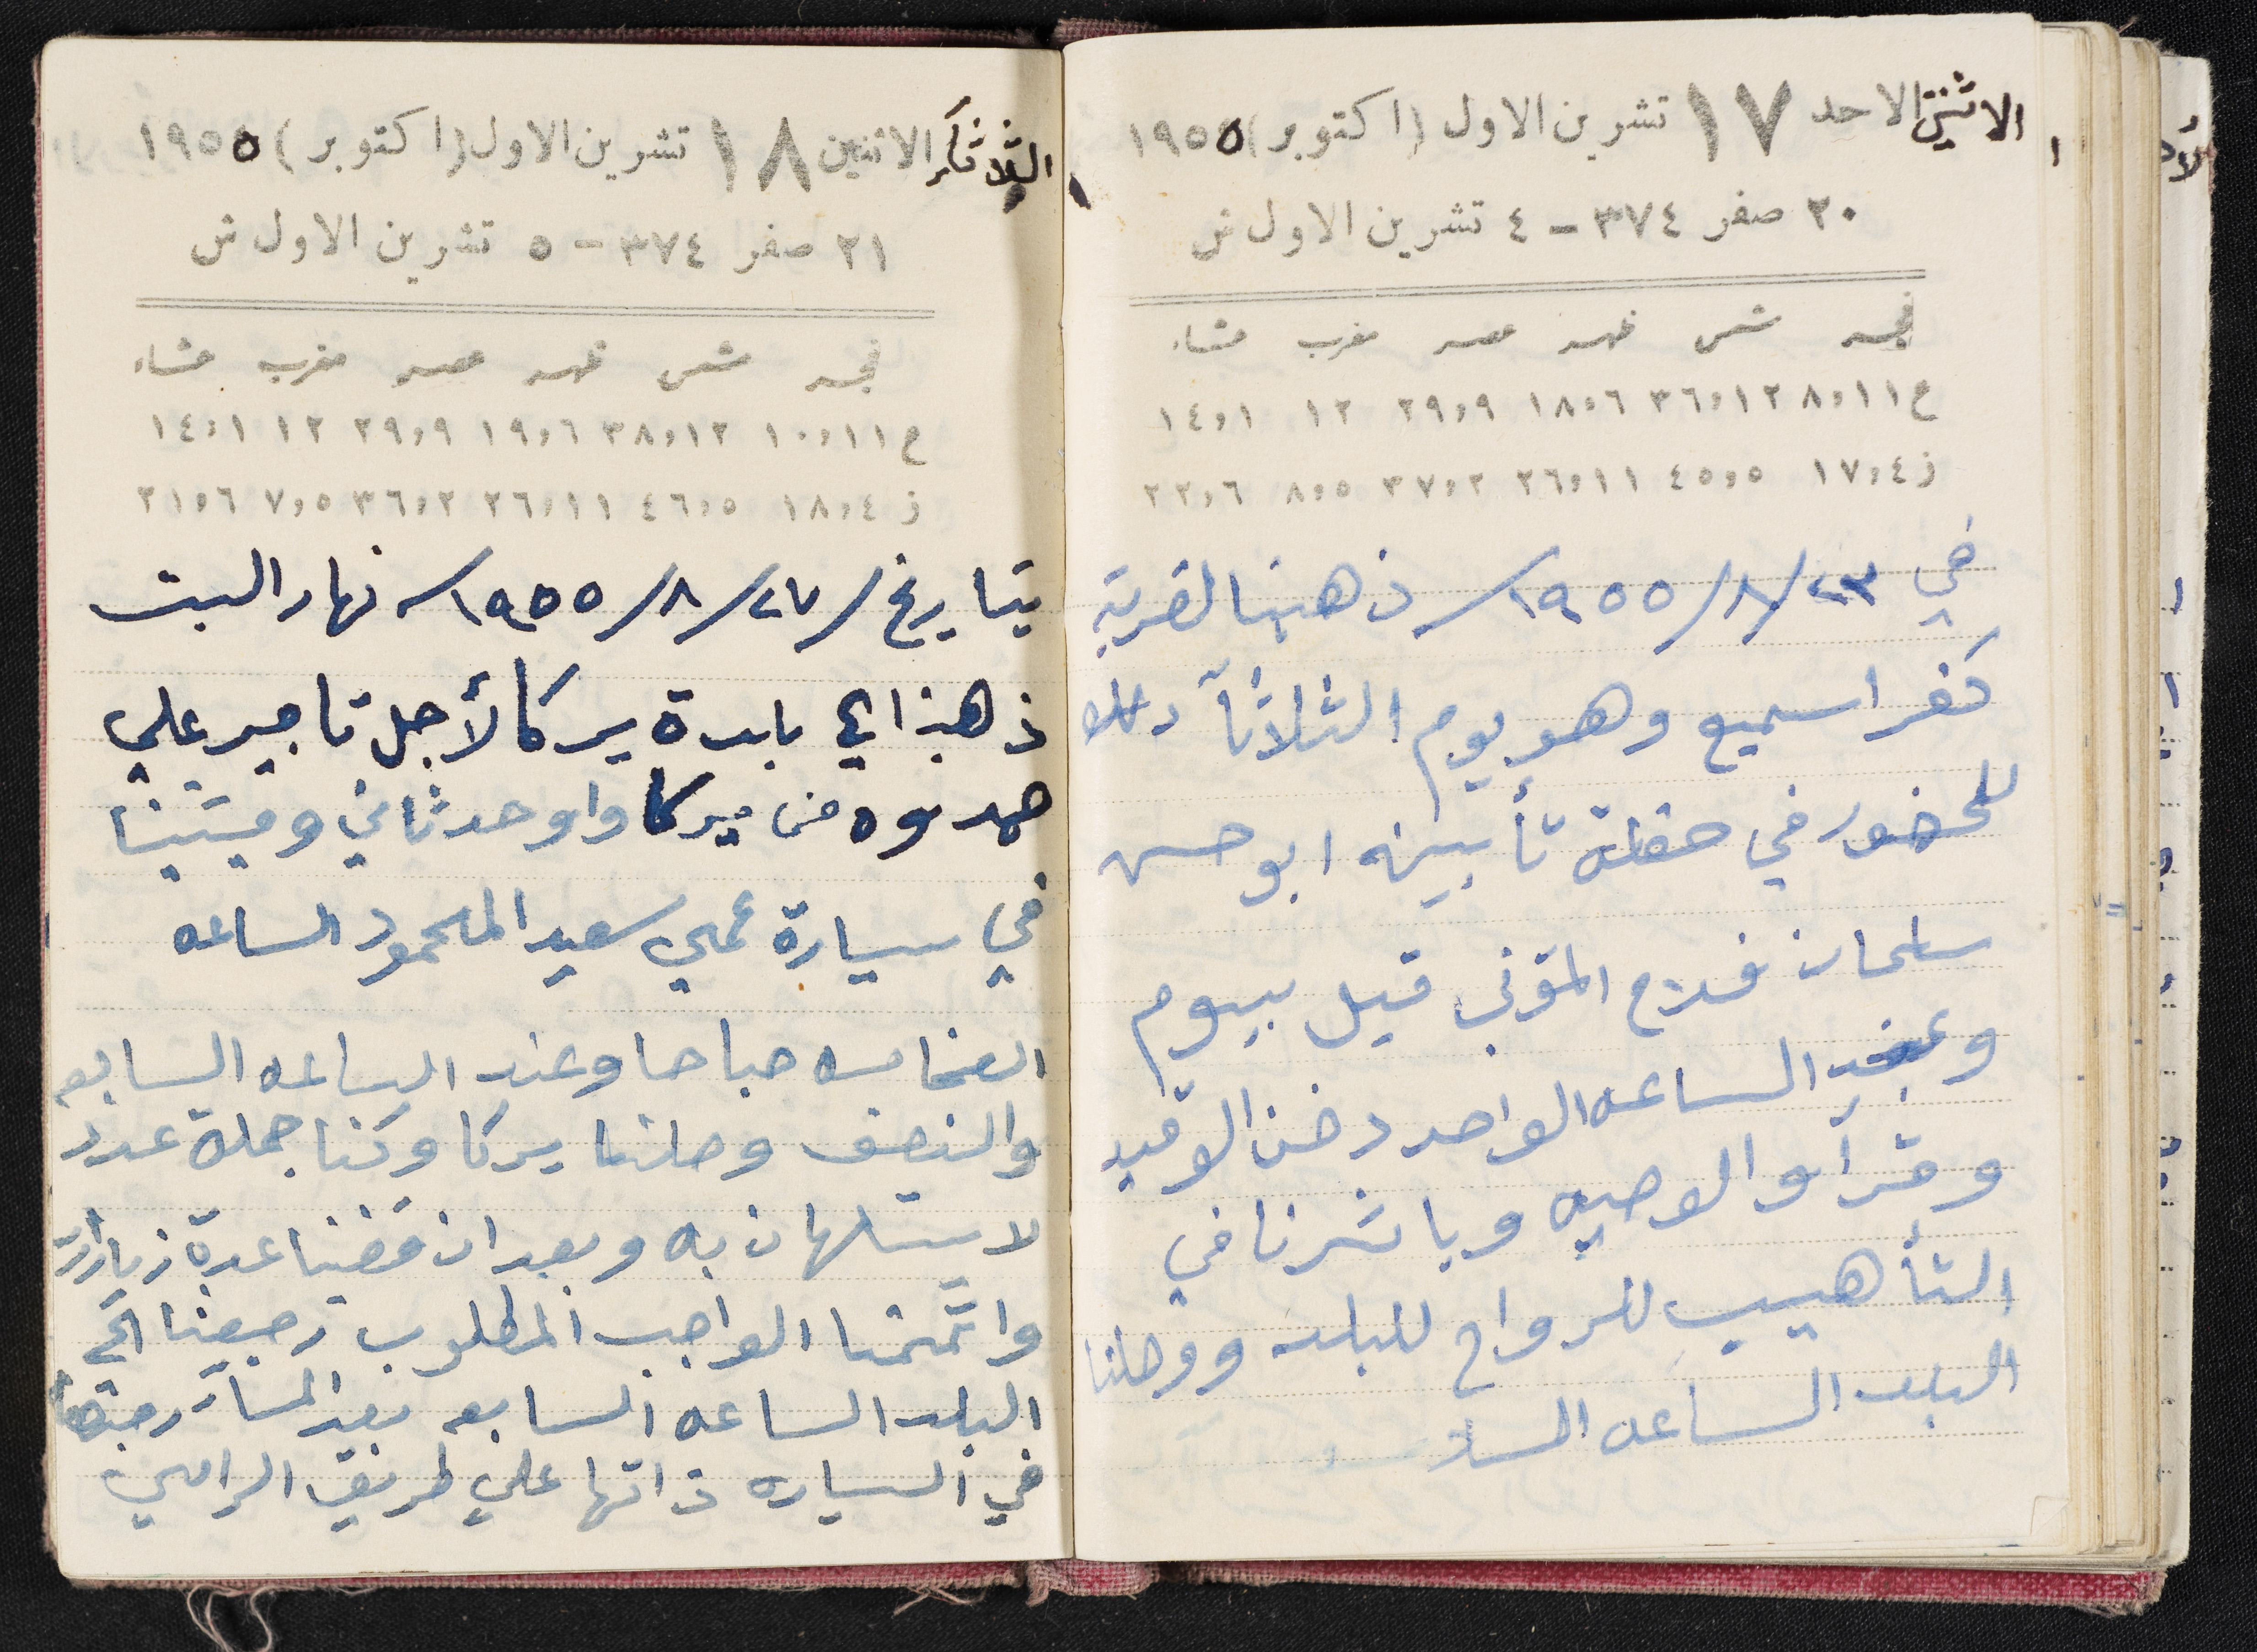 الاثنين الاحد ١٧ تشرين الاول (اكتوبر) ١٩٥٥
٢٠ صفر ٣٧٤ - ٤ تشرين الاول ش
فجر شمس ظهر عصر مغرب عشاء
ع ٨،١١ ٣٦،١٢ ١٨،٦ ٢٩،٩ ١٢ ١٤،١
ز ١٧،٤ ٤٥،٥ ٢٦،١١ ٣٧،٢ ٨،٥ ٢٢،٦
في ٢٣/٨/١٩٥٥ ذهبنا لقرية
كفراسميع وهو يوم الثلاثآ وذلك
للحضور في حفلة تأبينه ابو حسن
سلمان فلاح المتوفى قبل بيوم
وعند الساعه الواحد دفن الوقيد
وقرآو الوصيه وباشرنا في
التأهيب للرواح للبلد ووصلنا
البلد الساعه الساد
الثلاثآ الاثنين ١٨ تشرين الاول (اكتوبر) ١٩٥٥
٢١ صفر ٣٧٤ - ٥ تشرين الاول ش
فجر شمس ظهر عصر مغرب عشاء
ع ١٠،١١ ٣٨،١٢ ١٩،٦ ٢٩،٩ ١٢ ١٤،١
ز ١٨،٤ ٤٦،٥ ٢٦،١١ ٣٦،٢ ٧،٥ ٢١،٦
بتاريخ/٢٧/٨/١٩٥٥ نهار السبت
ذهبنا الى بلدة يركا لأجل تاجير علي
من يركا واوحد ثاني ومشينا
في سيارة عمي سعيد المحمود الساعه
الخامسه صباحا وعند الساعه السابعه
والنصف وصلنا يركا وكنا جملة عدد
لا يستهان به وبعد ان قضينا عدة زيارات
واتممنا الواجب المطلوب رجعنا الى
البلد الساعه السابعه بعد المسآ
في السياره ذاتها على طريق الرامي